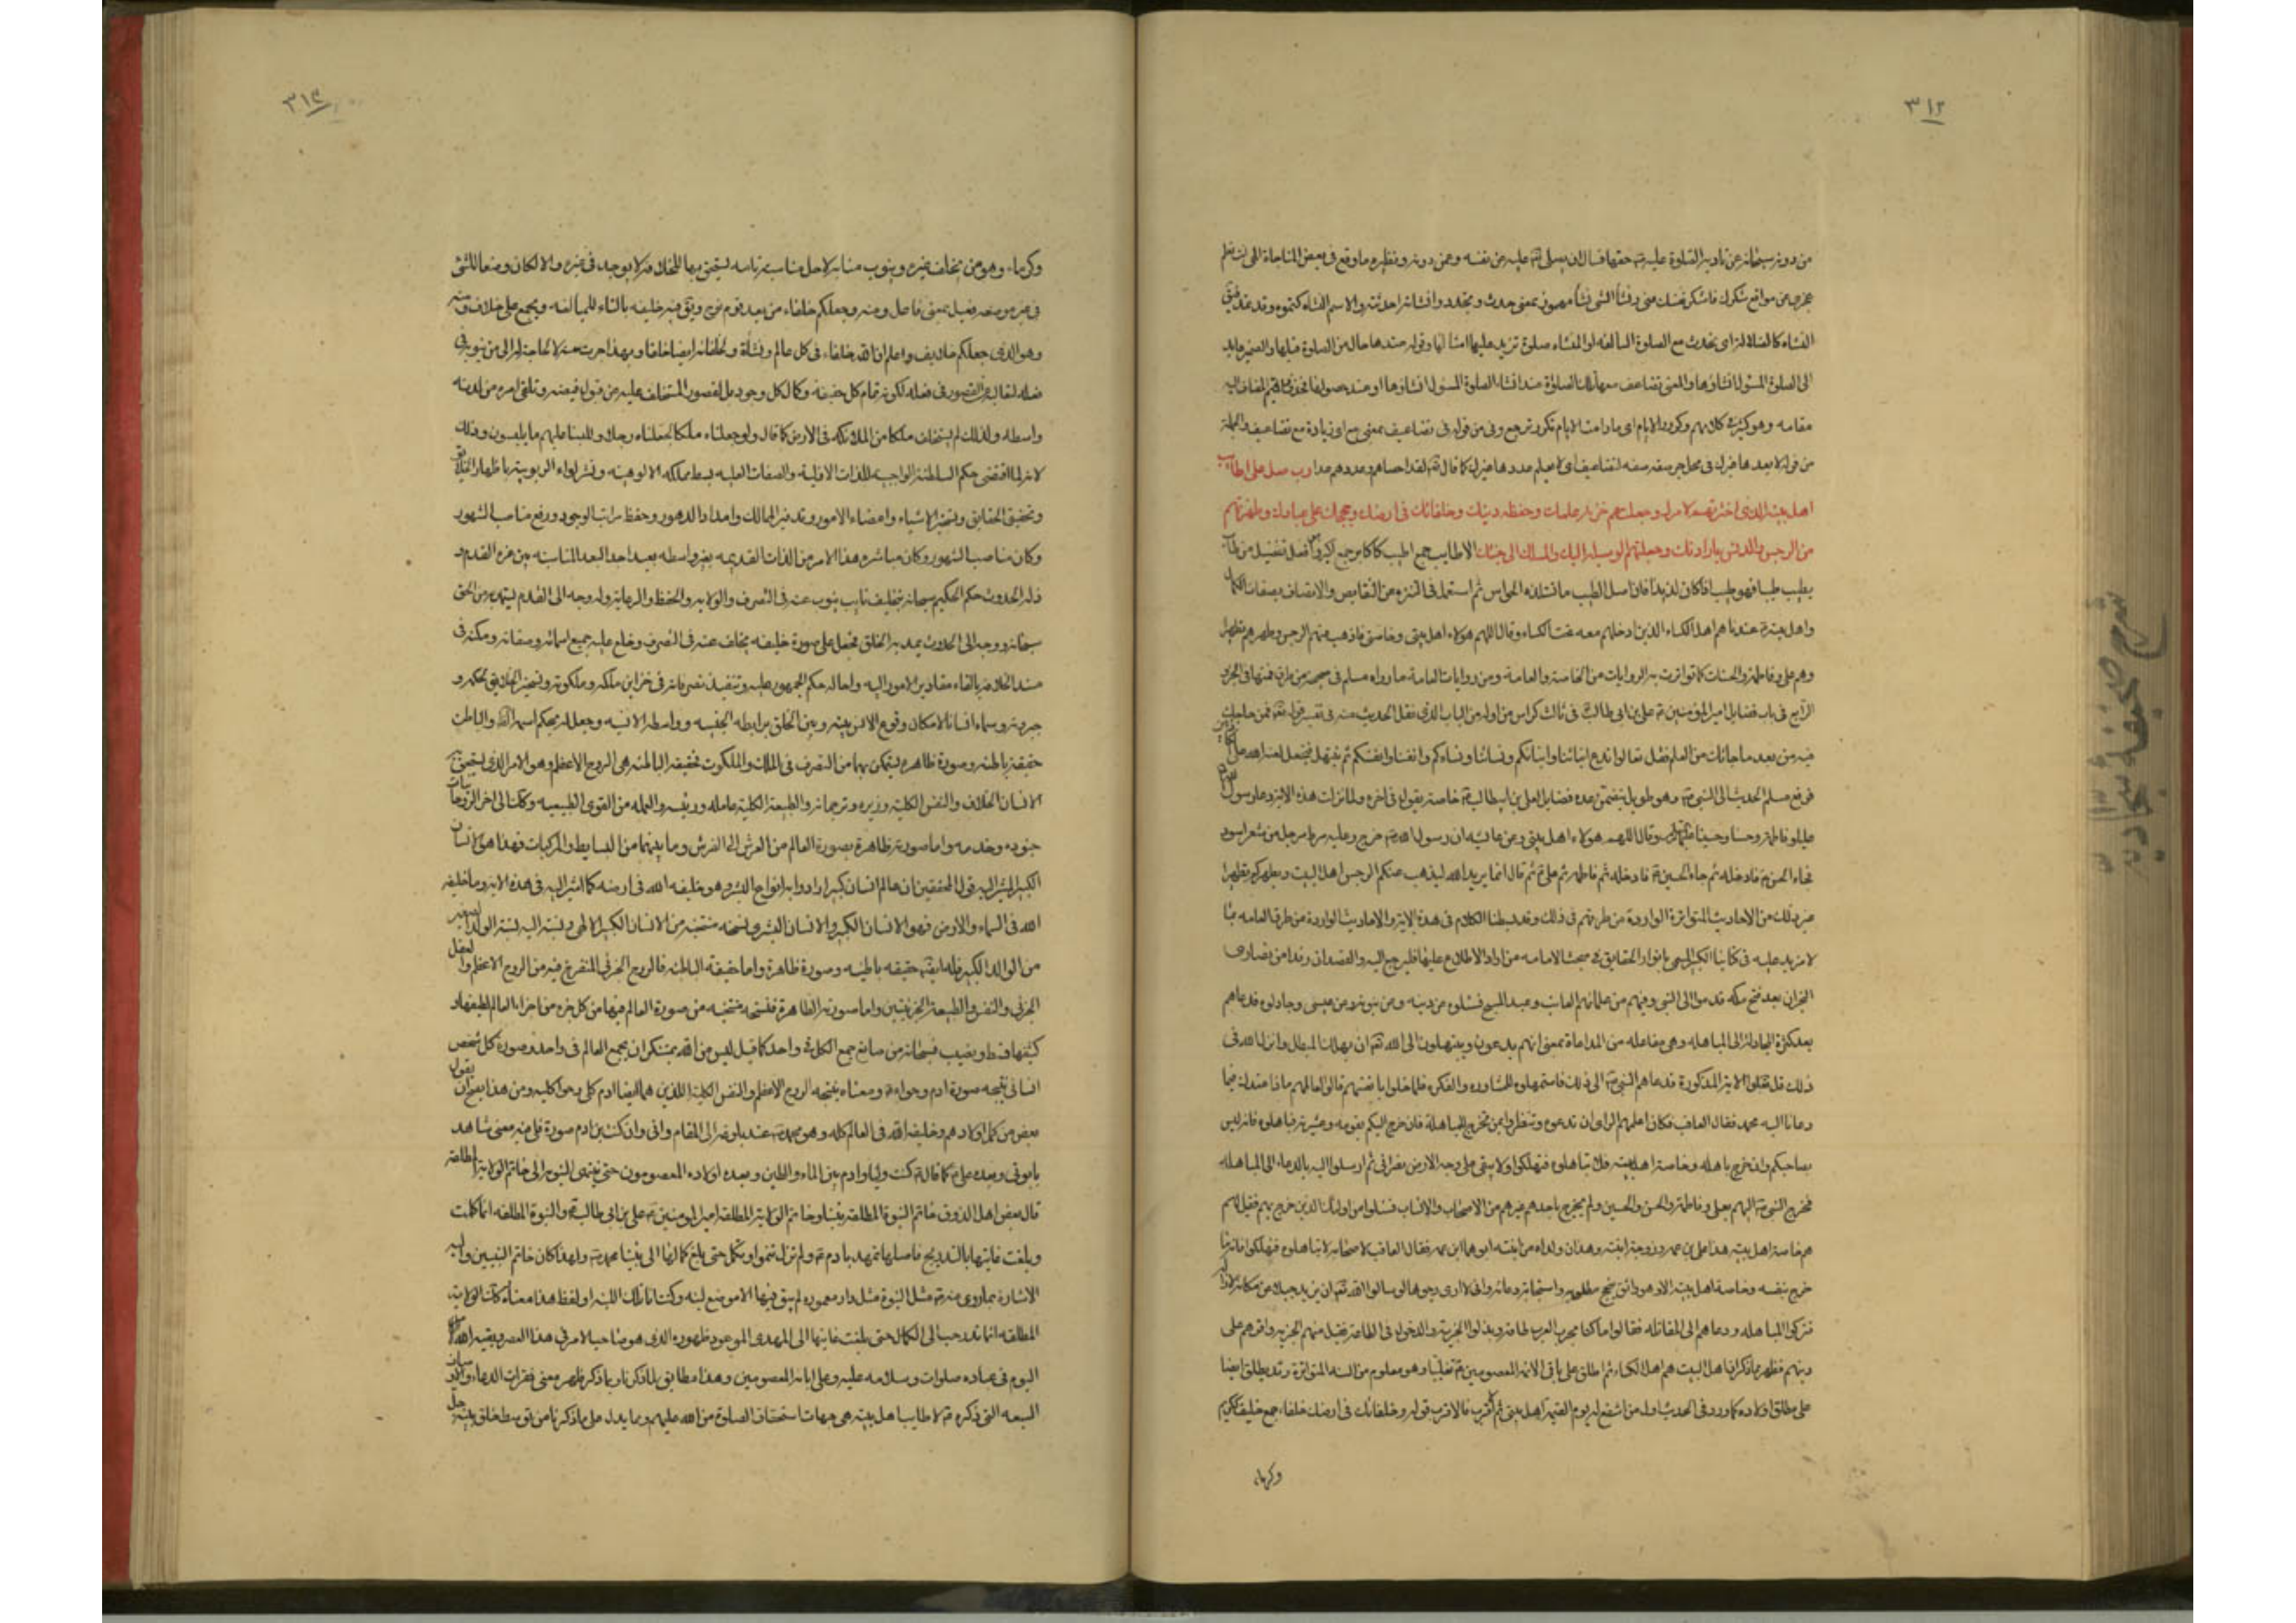 ٣١٢
من دونه سبحانه عن تأدية الصلوة عليه حقها فسأل ان يصلى الله عليه عن نفسه وعمن دونه ونظيره ما وقع فى بعض المناجاة الهى ان لم
عجزى عن مواقع شكرك فاشكر نفسك عنى نشأ الشى نشأ مهموز بمعنى حدث وتجدد وانشأته احدثته والاسم النشاه
الى الصلوة المسئول انشاؤها والمعنى تضاعف معها تلك الصلوة عند انشاء الصلوة المسئول انشاؤها او عند حصولها
مقامه وهو كثير فى كلامهم وكرور الايام اى ما دامت الايام تكرر ترجع وفى من قوله فى تضاعيف بمعنى مع اى زيادة مع تضاعيف والجملة
من قوله لا يعدها غيرك فى محل جر صفة لتضاعيف اى لا يعلم عددها غيرك كما قال لقد احصاهم وعدهم عدا رب صل على اطايب
اهل بيته الذين اخترتهم لامرك وجعلتهم خزنة علمك وحفظة دينك وخلفائك فى ارضك وحججك على عبادك وطهرتهم
من الرجس والدنس بارادتك وجعلتهم الوسيلة اليك والمسلك الى جنتك الاطايب جمع اطيب كاكابر جمع اكبر وهو افعل تفضيل من طاب
يطيب طيبا فهو طيب اذا كان لذيذا فان اصل الطيب ما تستلذه الحواس ثم استعمل فى التنزه من النقايص والاتصاف بصفات الكمال
واهل بيته عندنا هم اهل الكساء الذين ادخلهم معه تحت الكساء وقال اللهم هؤلاء اهل بيتى وخاصتى فاذهب عنهم الرجس وطهرهم تطهيرا
وهم على وفاطمة والحسنان كما تواترت به الروايات من الخاصة والعامة ومن روايات العامة ما رواه مسلم فى صحيحه من طرق فمنها فى الجزء
الرابع فى باب فضايل امير المؤمنين على بن ابى طالب فى ثالث كراس من اوله من الباب الذى نقل الحديث منه فى تفسير قوله فمن حاجك
فيه من بعد ما جائك من العلم فقل تعالوا ندع ابنائنا وابنائكم ونسائنا ونساءكم وانفسنا وانفسكم ثم نبتهل فنجعل لعنة الله على
فرفع مسلم الحديث الى النبى وهو طويل يتضمن عدة فضايل لعلى بن ابيطالب خاصة يقول فى آخره ولما نزلت هذه الاية دعا رسول
عليا وفاطمة وحسنا وحسينا وقال اللهم هؤلاء اهل بيتى وعن عائشه ان رسول الله خرج وعليه مرط مرجل من شعر اسود
فجاء الحسن فادخله ثم جاء الحسين فادخله ثم فاطمة ثم على ثم قال انما يريد الله ليذهب عنكم الرجس اهل البيت ويطهركم تطهيرا
غير ذلك من الاحاديث المتواترة الواردة من طرقهم فى ذلك وقد بسطنا الكلام فى هذه الاية والاحاديث الواردة من طرق العامه بما
لا مزيد عليه فى كتابنا الكبير المسمى بانوار الحقايق فى مبحث الامامه من اراد الاطلاع عليها فليرجع اليه والقصة ان وفدا من نصارى
النجران بعد فتح مكه قدموا الى النبى وفيهم من علمائهم العاقب وعبد المسيح فسئلوه عن دينه وعن نبوته وعن عيسى وجادلوه فدعاهم
بعد كثرة المجادلة الى المباهله وهى مفاعله من المداعاة بمعنى انهم يدعون ويبتهلون الى الله ان يهلك المبطل وانزل الله فى
ذلك قل تعالوا الاية المذكورة فدعاهم النبى الى ذلك فاستمهلوه للمشاوره والفكره فلما خلوا بانفسهم قالوا لعالمهم ماذا عندك فيما
دعانا اليه محمد فقال العاقب فكان اعلمهم الراى ان تدعوه وتنظروا بمن يخرج للمباهلة فان خرج اليكم بقومه وعشيرته فباهلوه فانه ليس
بصاحبكم وان خرج باهله وخاصة اهل بيته فلا تباهلوه فتهلكوا ولا يبقى على وجه الارض نصرانى ثم ارسلوا اليه بالدعاء الى المباهلة
فخرج النبى اليهم بعلى وفاطمة والحسن والحسين ولم يخرج باحد غيرهم من الاصحاب والانساب فسئلوا من اولئك الذين خرج بهم فقيل لهم
هم خاصة اهل بيته هذا على بن عمه وزوجة ابنته وهذان ولداه من ابنته ابوهما ابن عمه فقال العاقب لاصحابه لا تباهلوه فتهلكوا فانه
خرج بنفسه وخاصة اهل بيته الا وهو واثق بنجح مطلوبه واستجابة دعائه وانى لارى وجوها لو سالوا الله ان يزيد جبلا من مكانه لازاله
فتركوا المباهله ودعاهم الى المقاتله فقالوا ما لنا بحرب العرب طاقة وبذلوا الجزية والدخول فى الطاعة فقبل منهم الجزية واقرهم على
دينهم فظهر بما ذكرنا ان اهل البيت هم اهل الكساء ثم اطلق على باقى الائمة المعصومين تغليبا وهو معلوم من السنة المتواترة وقد يطلق ايضا
على مطلق اولاده كما ورد فى الحديث اول من اشفع له يوم القيمة اهل بيتى ثم الاقرب فالاقرب قوله وخلفائك فى ارضك خلفاء جمع خليفة ككريم
وكرماء
٣١٣
وكرماء وهو من يخلف غيره وينوب منابه لاجل مناسبة تامة يستحق بها الخلافة لا يوجد فى غيره والا لكان وضعا للشئ
فى غير موضعه فعيل بمعنى فاعل ومنه وجعلكم خلفاء من بعد قوم نوح ويق فيه خليفه بالتاء للمبالغه ويجمع على خلائف ومنه
وهو الذى جعلكم خلايف واعلم ان لله خلفاء فى كل عالم ونشأة ولخلفائه ايضا خلفاء وبهذا جرت سنته لا لحاجة له الى من ينوب فى
فعله تعالى عن القصور فى فعله لكونه تمام كل حقيقة وكمال كل وجود بل لقصور المستخلف عليه عن قبول فيضه وتلقى امره من لدنه
واسطه ولذلك لم يستخلف ملكا من الملائكه فى الارض كما قال ولو جعلناه ملكا لجعلناه رجلا وللبسنا عليهم ما يلبسون وذلك
لانه لما اقتضى حكم السلطنة الواجبة للذات الازلية والصفات العليه بسط مملكة الالوهية ونشر لواء الربوبية باظهار الخلايق
وتحقيق الحقايق وتسخير الاشياء وامضاء الامور وتدبير الممالك وامداد الدهور وحفظ مراتب الوجود ورفع مناصب الشهور
وكان مناصب الشهور وكان مباشرة هذا الامر من الذات القديمه بغير واسطه بعيدا جدا لبعد المناسبه بين عزة القدم و
ذلة الحدوث حكم الحكيم سبحانه بتخليف نايب ينوب عنه فى التصرف والولاية والحفظ والرعاية وله وجه الى القدم يستمد به من الحق
سبحانه ووجه الى الحدوث يمد به الخلق فجعل على صورة خليفه يخلف عنه فى التصرف وخلع عليه جميع اسمائه وصفاته ومكنه فى
مسند الخلافة بالقاء مقادير الامور اليه واحالة حكم الجمهور عليه وتنفيذ تصرفاته فى خزاين ملكه وملكوته وتسخير الخلايق لحكمه و
جبروته وسماه انسانا لامكان وقوع الانس بينه وبين الخلق برابطة الجنسيه وواسطة الانسيه وجعل له بحكم اسميه الظاهر والباطن
حقيقة باطنه وصورة ظاهره ليتمكن بهما من التصرف فى الملك والملكوت فحقيقته الباطنة هى الروح الاعظم وهو الامر الذى يستحق به
الانسان الخلافة والنفس الكلية وزيره وترجمانه والطبيعة الكلية عامله ورئيسه والعمله من القوى الطبيعيه وكذلك الى اخر الروحانيات
جنوده وخدمه واما صورته الظاهرة بصورة العالم من العرش الى الفرش وما بينهما من البسايط والمركبات فهذا هو الانسان
الكبير المشير اليه قول المحققين ان عالم انسان كبير ارادوا به انواع البشر وهو خليفه الله فى ارضه كما اشير اليه فى هذه الاية وما خليفة
الله فى السماء والارض فهو الانسان الكبير والانسان البشرى نسخه منتخبه من الانسان الكبير الالهى ونسبته اليه نسبة الولد الصغير
من الوالد الكبير فله ايضا حقيقه باطنه وصورة ظاهرة واما حقيقته الباطنه فالروح الجزئى المنفوخ فيه من الروح الاعظم والعقل
الجزئى والنفس والطبيعة الجزئيتين واما صورته الظاهرة فنسخه منتخبه من صورة العالم فيها من كل جزء من اجزاء العالم لطيفها و
كثيفها قسط ونصيب فسبحانه من صانع جمع الكل فى واحد كما قيل ليس من الله بمستنكر ان يجمع العالم فى واحد وصورة كل شخص
انسانى نتيجه صورة ادم وحواء ومعناه نتيجه الروح الاعظم والنفس الكلية اللذين هما ايضا ادم كلى وحوا كليه ومن هذا يصح ان يقول
بعض من كمل اولادهم وخليفة الله فى العالم كله وهو محمد عند بلوغه الى المقام وانى وان كنت بن ادم صورة فلى فيه معنى شاهد
بابوتى وبعده على كما قال كنت وليا وادم بين الماء والطين وبعده اولاده المعصومون حتى ينتهى النوبة الى خاتم الولاية المطلقة
قال بعض اهل الذوق خاتم النبوة المطلقة نبينا وخاتم الولاية المطلقة امير المومنين على بن ابى طالب والنبوة المطلقه انما كملت
وبلغت غايتها بالتدريج فاصلها تمهد بادم ولم تزل تنمو وتكمل حتى بلغ كمالها الى نبينا محمد ولهذا كان خاتم النبيين واليه
الاشارة بما روى عنه مثل النبوة مثل دار معموره لم يبق فيها الا موضع لبنه وكنت انا تلك اللبنه او لفظ هذا معناه كانت الولاية
المطلقه انما تدرجت الى الكمال حتى بلغت غايتها الى المهدى الموعود ظهوره الذى هو صاحب الامر فى هذا العصر وبقية الله
اليوم فى عباده صلوات وسلامه عليه وعلى ابائه المعصومين وهذا مطابق لما ذكرناه وبما ذكر ظهر معنى فقرات الدعاء
السبعه التى ذكره لاطايب اهل بيته هى جهات استحقاق الصلوة من الله عليهم ومما يدل على ما ذكرنا من توسط خلق
شرح صحيفه سجاديه